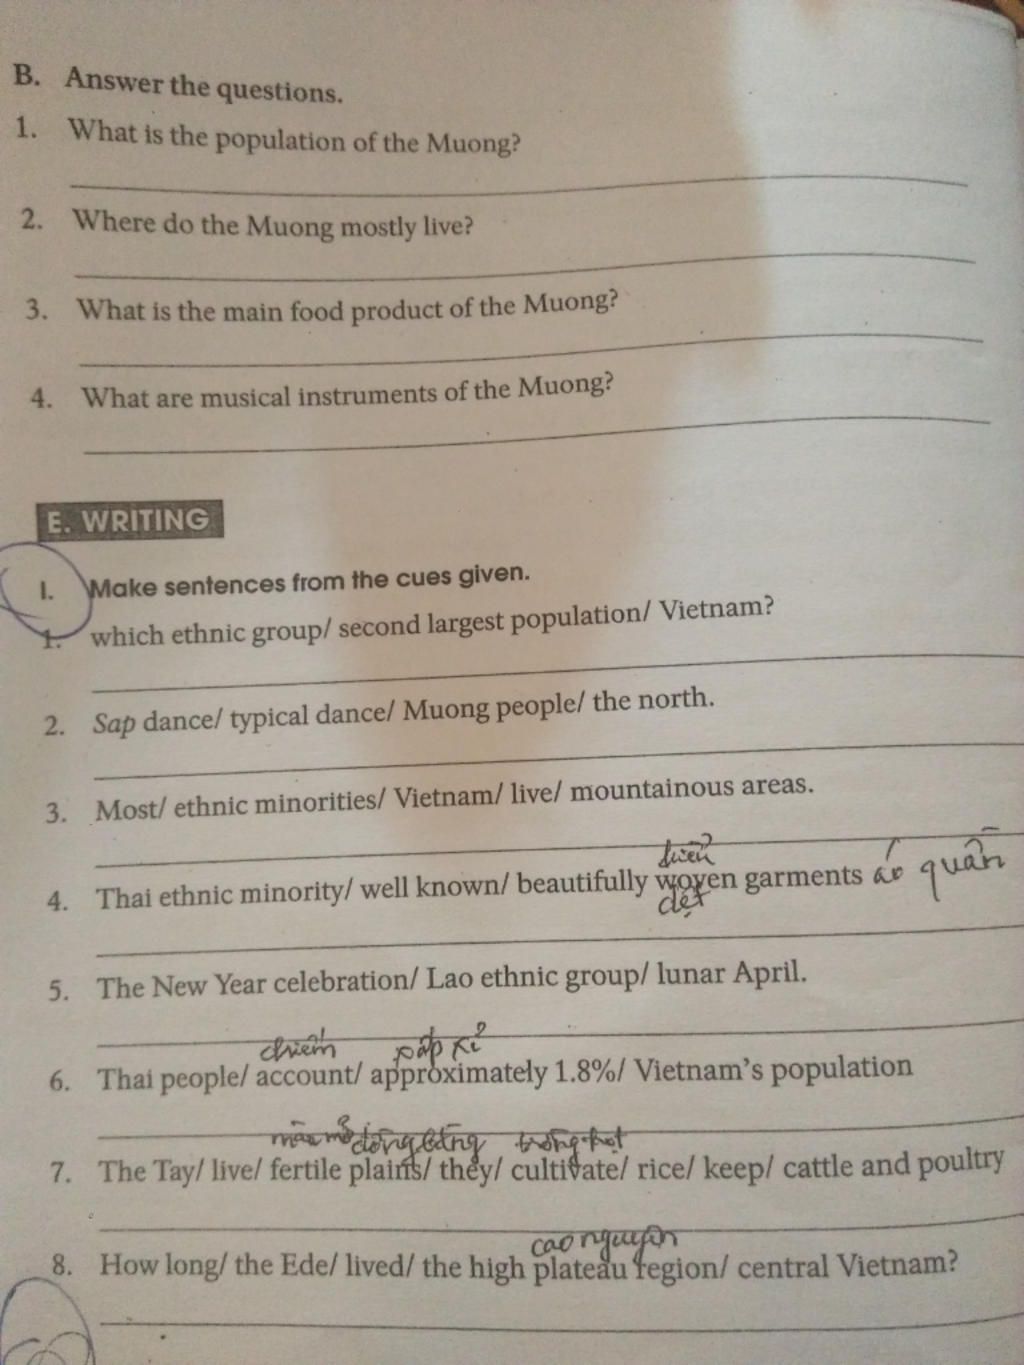 B. Answer the questions.
1. What is the population of the Muong?
2. Where do the Muong mostly live?
3. What is the main food product of the Muong?
4. What are musical instruments of the Muong?
E. WRITING
I. Make sentences from the cues given.
1. which ethnic group/ second largest population/ Vietnam?
2. Sap dance/ typical dance/ Muong people/ the north.
3. Most/ ethnic minorities/ Vietnam/ live/ mountainous areas.
4. Thai ethnic minority/ well known/ beautifully woven garments áo quần
dệt
5. The New Year celebration/ Lao ethnic group/ lunar April.
chiếm xấp xỉ
6. Thai people/ account/ approximately 1.8%/ Vietnam's population
màu mỡ đồng bằng trồng trọt
7. The Tay/ live/ fertile plains/ they/ cultivate/ rice/ keep/ cattle and poultry
cao nguyên
8. How long/ the Ede/ lived/ the high plateau region/ central Vietnam?